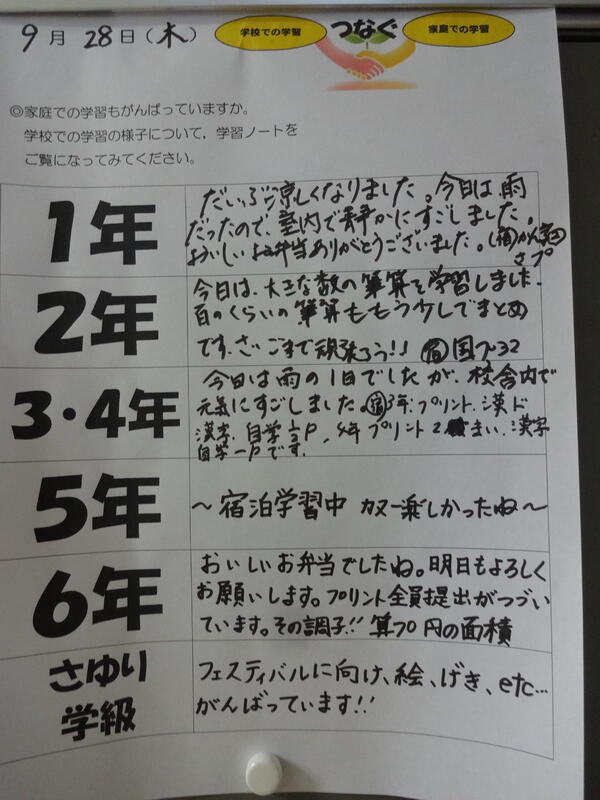 9月 28日(木)
学校での学習 つなぐ 家庭での学習
◎家庭での学習もがんばっていますか。
学校での学習の様子について，学習ノートを
ご覧になってみてください。
1年
だいぶ涼しくなりました。今日は雨
だったので、室内で静かにすごしました。
おいしいお弁当ありがとうございました。
2年
今日は、大きな数の筆算を学習しました。
百のくらいの筆算ももう少しでまとめ
です。さいごまで頑張ろう!! 宿 国プ32
3・4年
今日は雨の1日でしたが、校舎内で
元気にすごしました。宿3年.プリント.漢ド
漢字.自学1/2P、4年プリント2まい.漢字
自学一Pです.
5年
～宿泊学習中 カヌー楽しかったね～
6年
おいしいお弁当でしたね。明日もよろしく
お願いします。プリント全員提出がつづい
ています。その調子!! 算プ0 円の面積
さゆり
学級
フェスティバルに向け、絵、げき、etc…
がんばっています!!